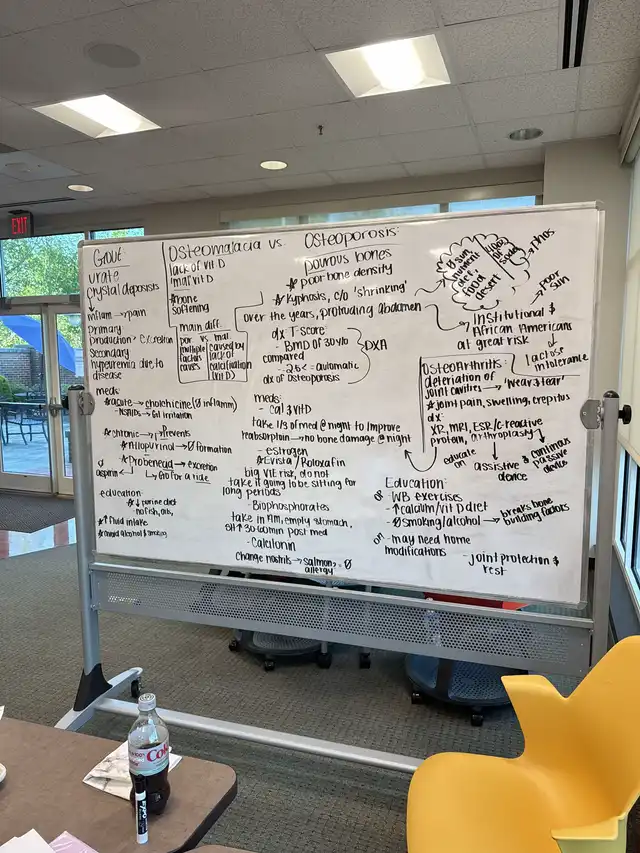 EXIT
Gout
urate
crystal deposists
↓
inflam → pain
Primary
Production > Excretion
Secondary
hyperuremia due to
disease
meds:
*acute → cholchicine (Ø inflamm)
↳ NSAIDs → GI irritation
*chronic → Prevents
*Allopurinol → Ø formation
*Probenead → excretion
aspirin
Go for a ride
education:
*↓ purine diet
no fish, oils,
*↑ Fluid intake
*avoid alcohol & smoking
Osteomalacia vs.
lack of vit D
mal vit D
*bone
softening
main diff:
por vs mal
multiple
factors
causes
caused by
lack of
calcification
(vit D)
Osteoporosis:
porous bones
*poor bone density
*Kyphosis, c/o 'shrinking'
over the years, protruding abdomen
dx T-score
- BMD of 30 y/o
compared
- 2.5 <= automatic
dx of Osteoporosis
DXA
meds:
- Cal & Vit D
take 1/3 of med @ night to improve
reabsorption → no bone damage @ night
- estrogen
*Evista / Roloxafin
big VTE risk, do not
take if going to be sitting for
long periods
- Biophosphorates
take in AM, empty stomach,
sit ↑ 30-60 min post med
- Calcitonin
change nostrils → salmon allergy = Ø
food
desert
phos
poor
sun
Institutional &
African Americans
at great risk
lactose
intolerante
OsteoArthritis:
deteriation of
joint cavities → 'wear & tear'
*joint pain, swelling, crepitus
dx:
XR, MRI, ESR/C-reactive
protein, arthroplasty
educate
on
assistive
device
continuous
passive
device
Education:
- WB exercises
- ↑ calcium/vit D diet
- Ø smoking/alcohol → breaks bone
building factors
- may need home
modifications
- Joint protection &
rest
Coke
EXPO